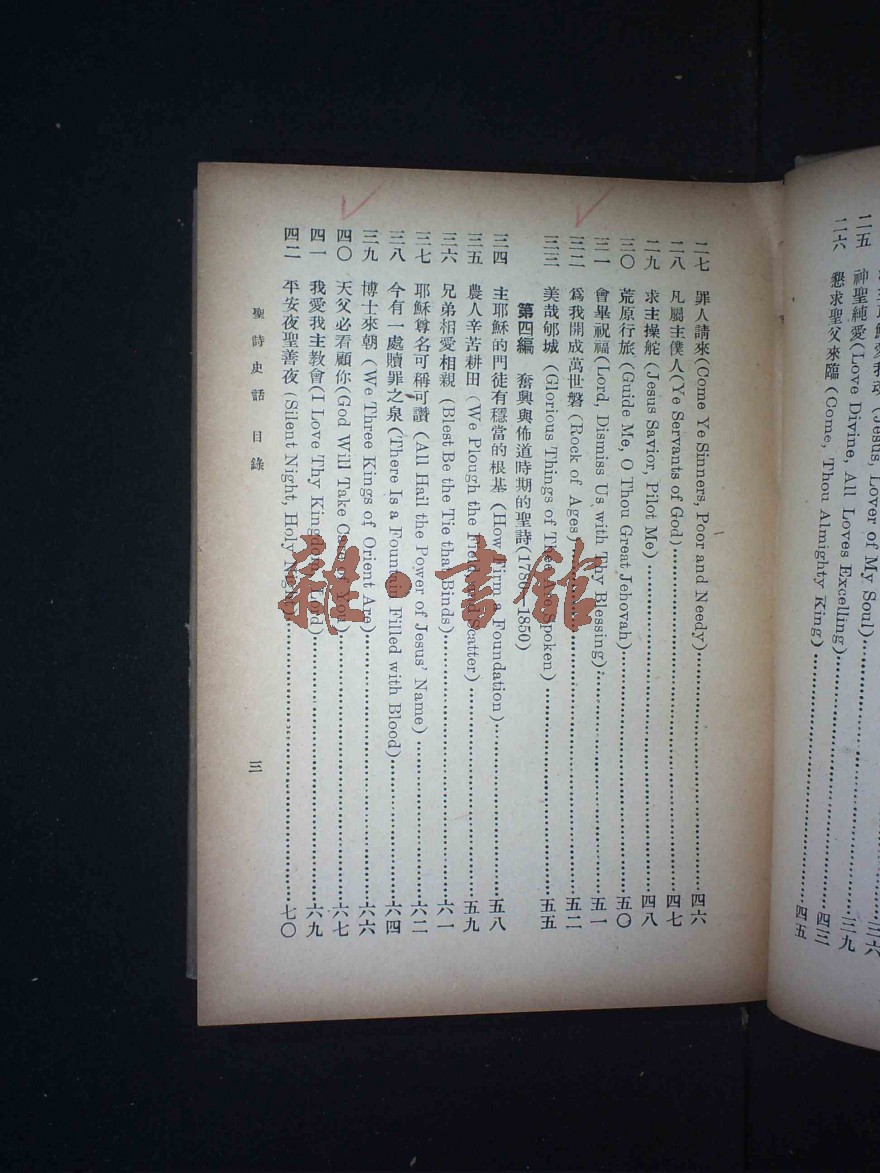 二五
神聖純愛(Love Divine, All Loves Excelling)……三九
二六 懇求聖父來臨(Come, Thou Almighty King)……四三
四五
二七 罪人請來(Come Ye Sinners, Poor and Needy)……四六
二八 凡屬主僕人(Ye Servants of God)……四七
二九 求主操舵(Jesus Savior, Pilot Me)……四八
三〇 荒原行旅(Guide Me, O Thou Great Jehovah)……五〇
三一 會畢祝福(Lord, Dismiss Us with Thy Blessing)……五一
三二 爲我開成萬世磐(Rock of Ages)……五二
三三 美哉郇城(Glorious Things of Thee Are Spoken)……五五
第四編 奮興與佈道時期的聖詩(1780—1850)
三四 主耶穌的門徒有穩當的根基(How Firm a Foundation)……五八
三五 農人辛苦耕田(We Plough the Fields and Scatter)……五九
三六 兄弟相愛相親(Blest Be the Tie that Binds)……六一
三七 耶穌尊名可稱可讚(All Hail the Power of Jesus' Name)……六二
三八 今有一處贖罪之泉(There Is a Fountain Filled with Blood)……六四
三九 博士來朝(We Three Kings of Orient Are)……六六
四〇 天父必看顧你(God Will Take Care of You)……六七
四一 我愛我主教會(I Love Thy Kingdom, Lord)……六九
四二 平安夜聖善夜(Silent Night, Holy Night)……七〇
聖詩史話 目錄 三
雜·書館